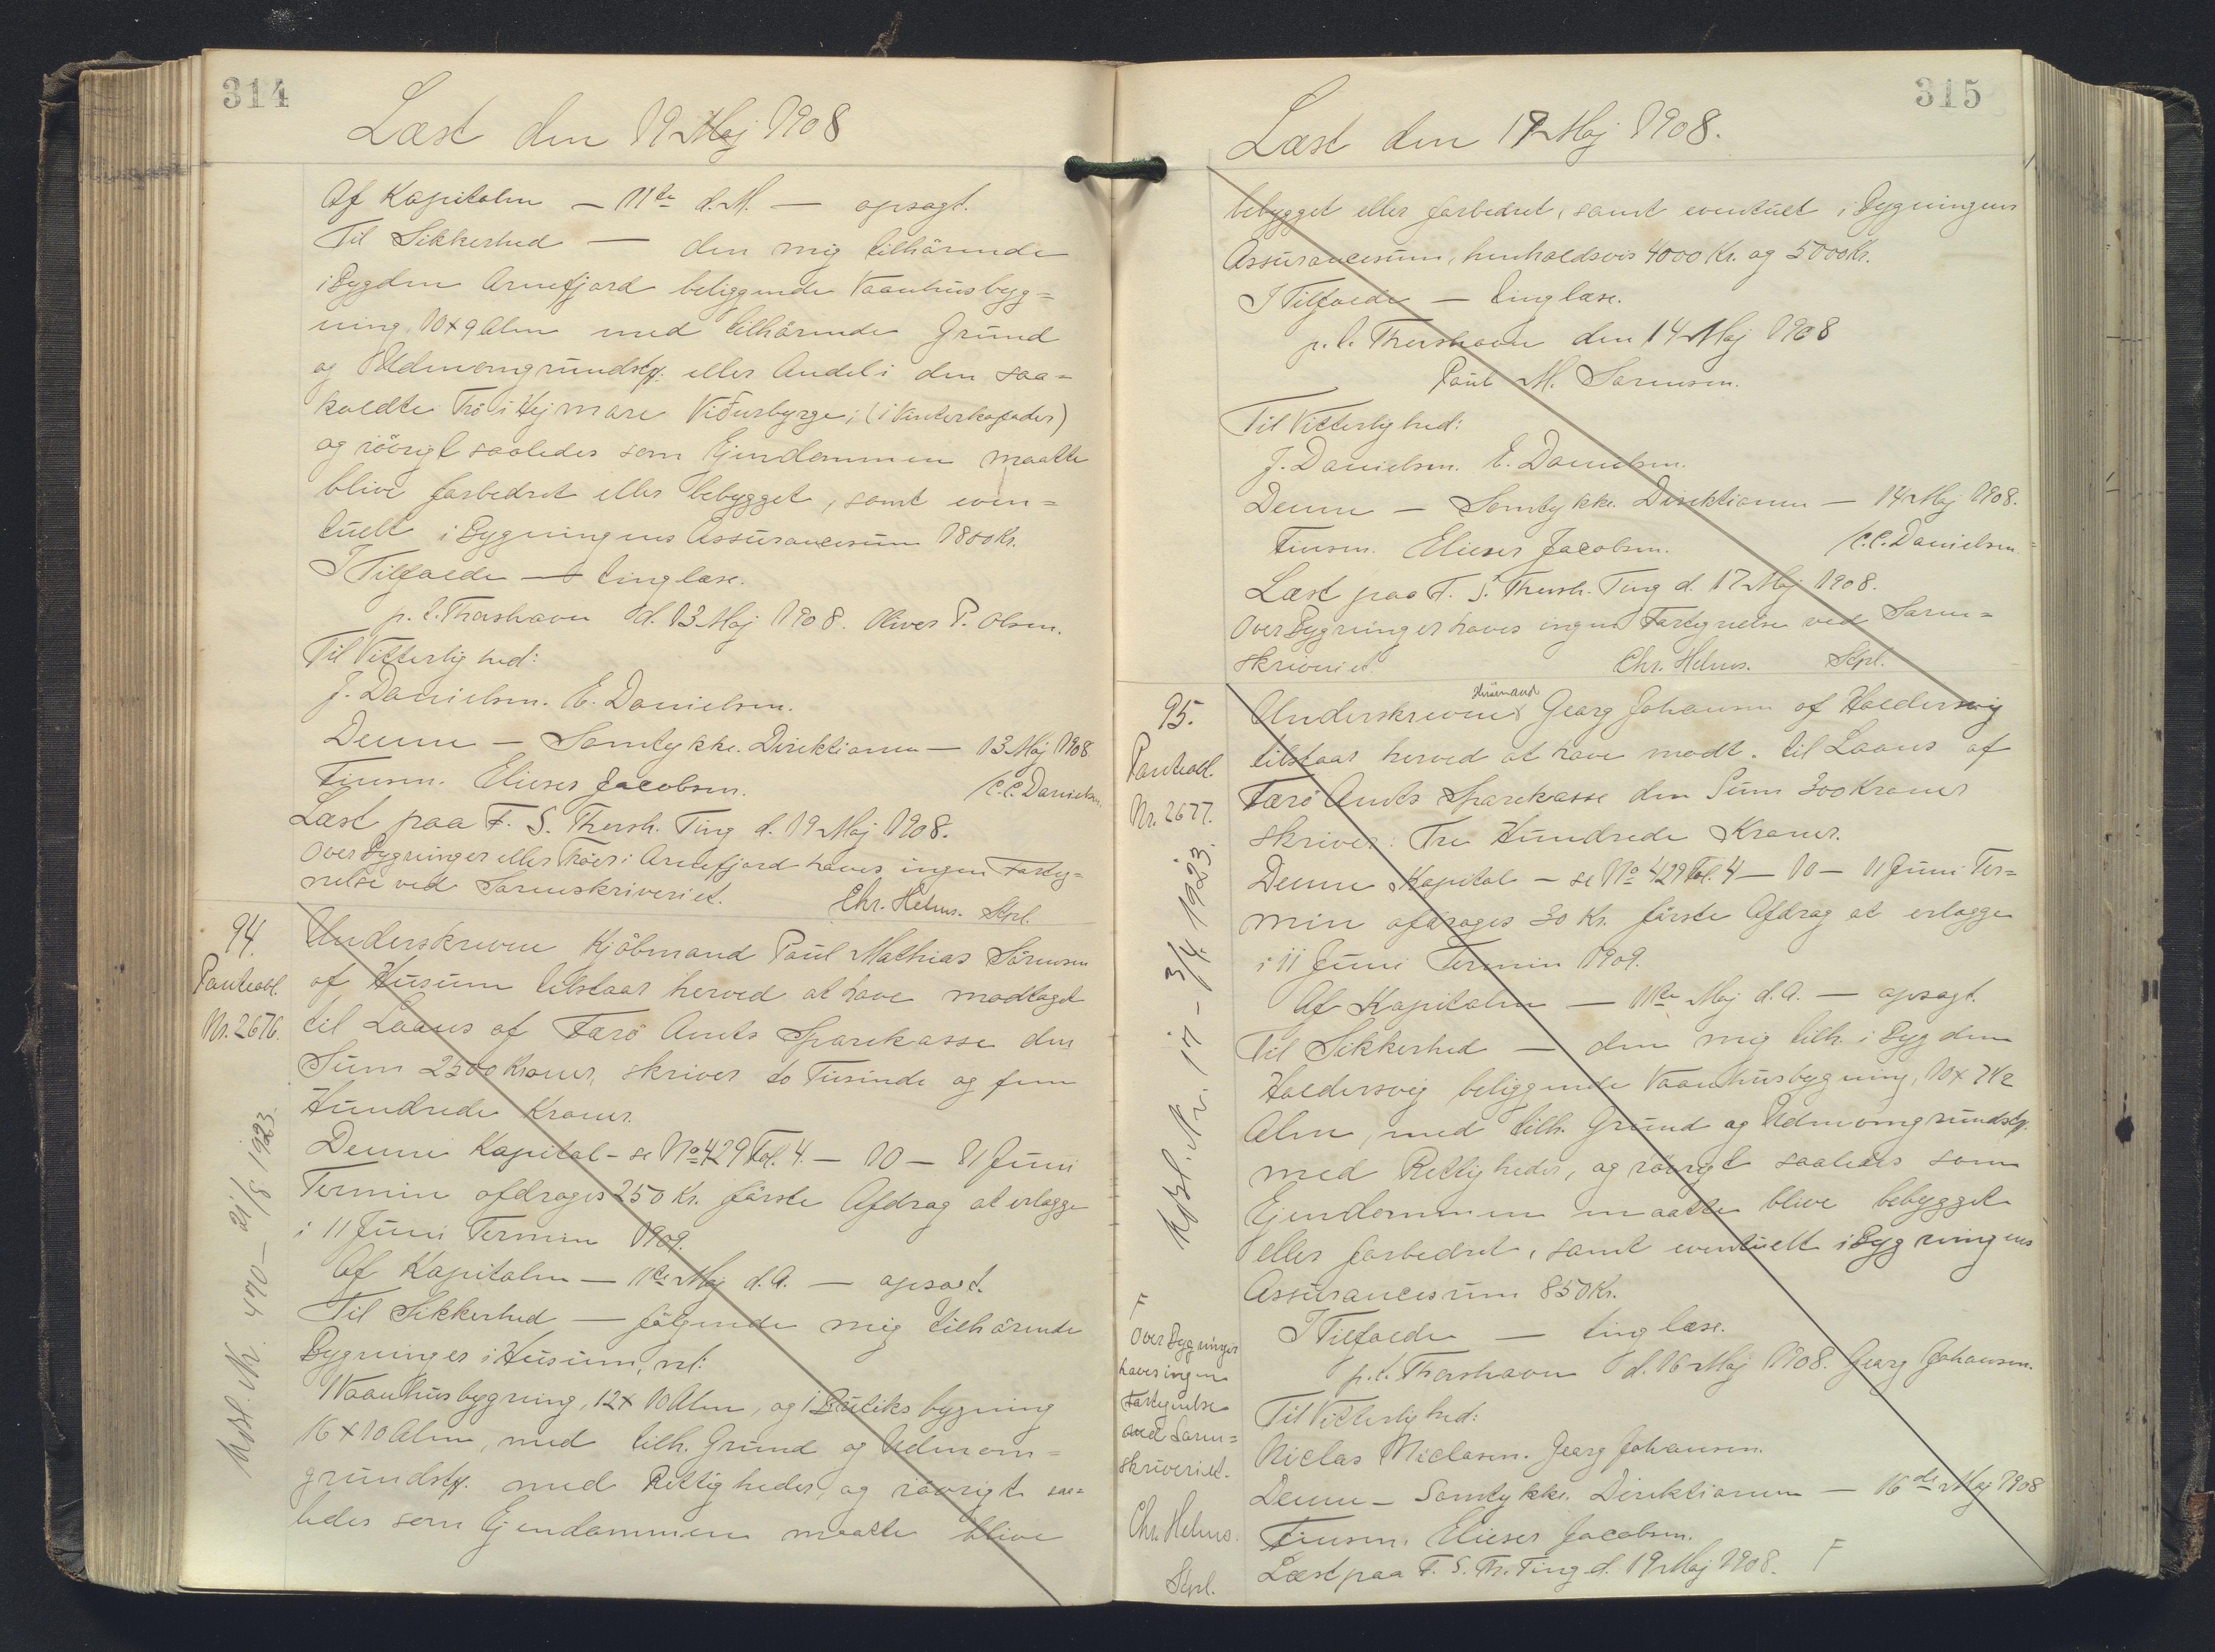 314
Læst den 19 Maj 1908
Af Kapitalen — 11te d. M. — opsagt.
Til Sikkerhed — den mig tilhörende
i Bygden Arnefjord beliggende Vaanhusbyg=
ning, 10 x 9 Alen med tilhörende Grund
og Udenomgrundstk. eller Andel i den saa=
kaldte Trö i Hejmare Viðurbyrge; (i Vinterhagader)
og iövrigt saaledes som Ejendommen maatte
blive forbedret eller bebygget, samt even=
tuelt i Bygningens Assurancesum 1800 Kr.
I Tilfælde — tinglæse.
p. t. Thorshavn d. 13 Maj 1908. Oliver P. Olsen.
Til Vitterlighed:
J. Danielsen. E. Danielsen.
Denne — Samtykke. Direktionen — 13 Maj 1908.
Finsen. Elieser Jacobsen. C.C. Danielsen.
Læst paa F. S. Thorsh. Ting d. 19 Maj 1908.
Over Bygninger eller Tröer i Arnefjord haves ingen Forteg=
nelse ved Sorenskriveriet. Chr. Helms. Skpl.
94.
Panteobl.
Nr. 2676.
Underskrevne Kjöbmand Paul Mathias Sörensen
af Husum tilstaar herved at have modtaget
til Laans af Færö Amts Sparekasse den
Sum 2500 Kroner, skriver to Tusinde og fem
Hundrede Kroner.
Denne Kapital - se No 429 Fol. 4. — 10 — 11 Juni
Termin afdrages 250 Kr. förste Afdrag at erlægge
i 11 Juni Termin 1909.
Af Kapitalen — 11te Maj d. A. — opsagt.
Til Sikkerhed — fölgende mig tilhörende
Bygninger i Husum, nl:
1 Vaanhusbygning, 12 x 10 Alen, og 1 Butiksbygning
16 x 10 Alen, med tilh. Grund og Udenom=
grundstk. med Rettigheder, og iövrigt saa=
ledes som Ejendommen maatte blive
Kvsl. Nr. 470 — 21/8 1923.
315
Læst den 19 Maj 1908.
bebygget eller forbedret, samt eventuelt i Bygningens
Assurancesum, henholdsvis 4000 Kr. og 5000 Kr.
I Tilfælde — tinglæse.
p. t. Thorshavn den 14 Maj 1908
Paul M. Sörensen.
Til Vitterlighed:
J. Danielsen. E. Danielsen.
Denne — Samtykke. Direktionen — 14 Maj 1908.
Finsen. Elieser Jacobsen. C.C. Danielsen.
Læst paa F. S. Thorsh. Ting d. 19 Maj 1908.
Over Bygninger haves ingen Fortegnelse ved Soren=
skriveriet. Chr. Helms. Skpl.
95.
Panteobl.
Nr. 2677.
Underskrevne Husmand Georg Johansen af Haldersvig
tilstaar herved at have modt. til Laans af
Færö Amts Sparekasse den Sum 300 Kroner
skriver: Tre Hundrede Kroner.
Denne Kapital — se No 429 Fol. 4 — 10 — 11 Juni Ter=
min afdrages 30 Kr. förste Afdrag at erlægge
i 11 Juni Termin 1909.
Af Kapitalen — 11te Maj d. A. — opsagt.
Til Sikkerhed — den mig tilh. i Bygden
Haldersvig beliggende Vaanhusbygning, 10 x 7 1/2
Alen, med tilh. Grund og Udenomgrundstk.
med Rettigheder, og iövrigt saaledes som
Ejendommen maatte blive bebygget
eller forbedret, samt eventuelt i Bygningens
Assurancesum 850 Kr.
I Tilfælde — tinglæse.
p. t. Thorshavn d. 16 Maj 1908. Georg Johansen.
Til Vitterlighed:
Niclas Niclasen. Georg Johansen.
Denne — Samtykke. Direktionen — 16de Maj 1908
Finsen. Elieser Jacobsen.
Læst paa F. S. Th. Ting d. 19 Maj 1908. F
Kvsl. Nr. 17 - 3/4 1923.
F
Over Bygninger
haves ingen
Fortegnelse
ved Soren=
skriveriet.
Chr. Helms.
Skpl.